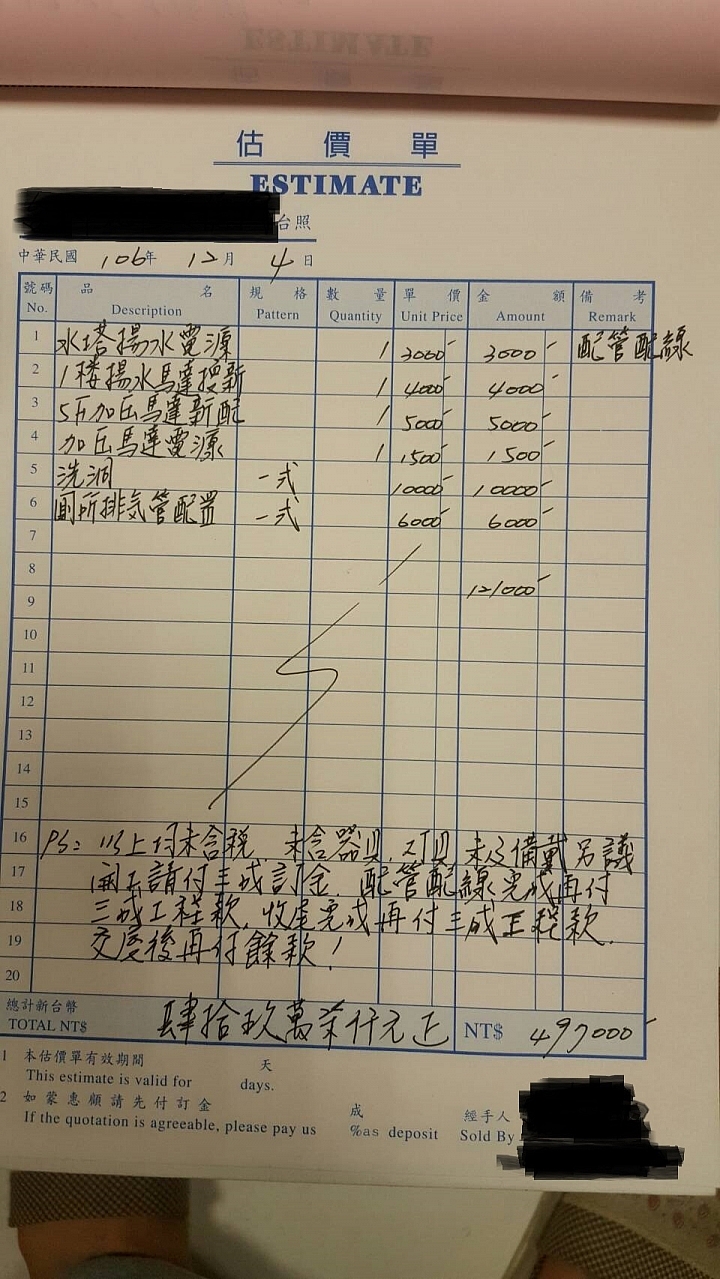 估價單
ESTIMATE
台照
中華民國 106年 12月 4日
號碼 品名 規格 數量 單價 金額 備考
No. Description Pattern Quantity Unit Price Amount Remark
1 水塔揚水電源 1 3000 3000 配管配線
2 1樓揚水馬達換新 1 4000 4000
3 5F加压馬達新配 1 5000 5000
4 加压馬達電源 1 1500 1500
5 洗洞 一式 10000 10000
6 廁所排气管配置 一式 6000 6000
7
8
9 121000
10
11
12
13
14
15
16 PS: 以上均未含税 未含器具,灯具 未及備載另議
17 開工請付三成訂金. 配管配線完成再付
18 三成工程款, 收尾完成再付三成工程款.
19 交屋後再付餘款!
20
總計新台幣 肆拾玖萬柒仟元正
TOTAL NT$ NT$ 497000
1 本估價單有效期間 天
This estimate is valid for days.
2 如蒙惠顧請先付訂金 成 經手人
If the quotation is agreeable, please pay us %as deposit Sold By